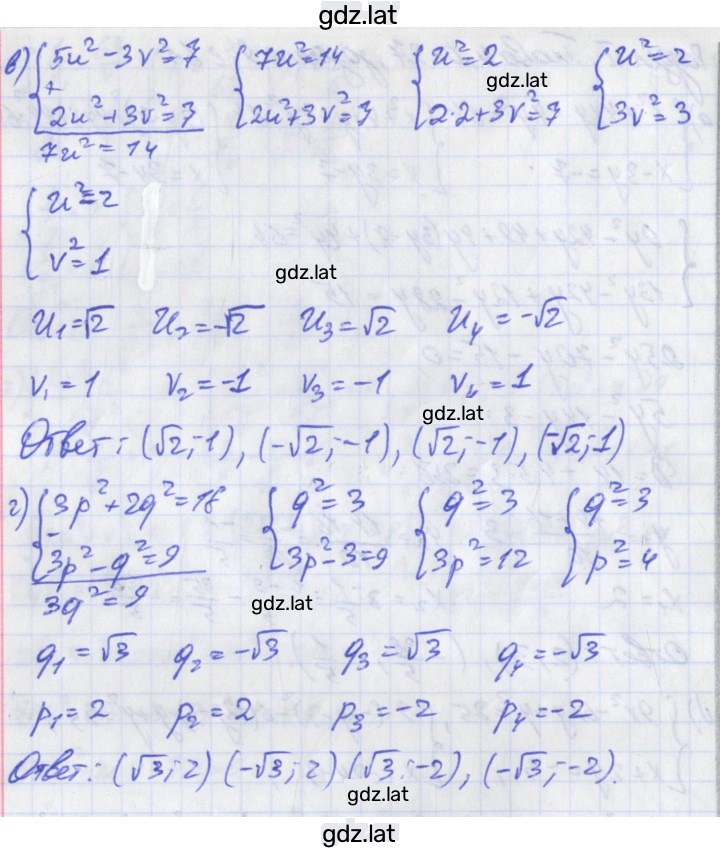 gdz.lat
в) { 5u² - 3v² = 7 { 7u² = 14 { u² = 2 { u² = 2
+ gdz.lat
2u² + 3v² = 7 2u² + 3v² = 7 2·2 + 3v² = 7 3v² = 3
7u² = 14
{ u² = 2
v² = 1
gdz.lat
u₁ = √2 u₂ = -√2 u₃ = √2 u₄ = -√2
v₁ = 1 v₂ = -1 v₃ = -1 v₄ = 1
gdz.lat
Ответ: (√2; 1), (-√2; -1), (√2; -1), (-√2; 1)
г) { 3p² + 2q² = 18 { q² = 3 { q² = 3 { q² = 3
-
3p² - q² = 9 3p² - 3 = 9 3p² = 12 p² = 4
3q² = 9
gdz.lat
q₁ = √3 q₂ = -√3 q₃ = √3 q₄ = -√3
p₁ = 2 p₂ = 2 p₃ = -2 p₄ = -2
Ответ: (√3; 2) (-√3; 2) (√3; -2), (-√3; -2).
gdz.lat
gdz.lat